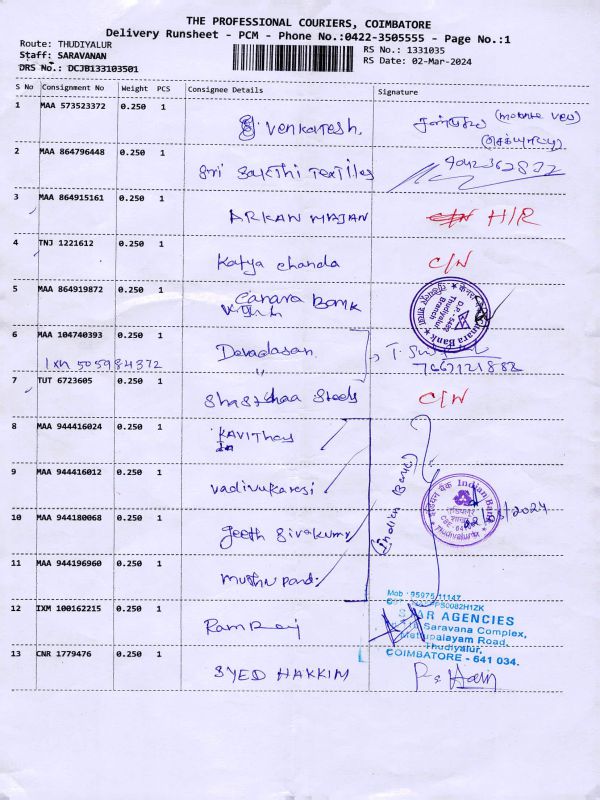 THE PROFESSIONAL COURIERS, COIMBATORE
Delivery Runsheet - PCM - Phone No.:0422-3505555 - Page No.:1
Route: THUDIYALUR
RS No.: 1331035
Staff: SARAVANAN
RS Date: 02-Mar-2024
DRS No.: DCJB133103501
S No Consignment No Weight PCS Consignee Details Signature
1 MAA 573523372 0.250 1 S. Venkatesh.
2 MAA 864796448 0.250 1 Sri Sakthi Textiles
3 MAA 864915161 0.250 1 ARKAN MAJAN H/R
4 TNJ 1221612 0.250 1 Katya chanda C/N
5 MAA 864919872 0.250 1 Canara Bank
Thudiyalur
Branch
6 MAA 104740393 0.250 1 Devadasan
Ixm 505984372 〃
7 TUT 6723605 0.250 1 Shasthaa Steels C/N
8 MAA 944416024 0.250 1 Kavithay
9 MAA 944416012 0.250 1 Vadivukarasi
(Indian Bank)
Indian Bank
Thudiyalur
10 MAA 944180068 0.250 1 Geeth Sivakumy
11 MAA 944196960 0.250 1 Muthu Pandi
Mob : 95975 11147
12 IXM 100162215 0.250 1 Ram Raj
AGENCIES
Saravana Complex,
Mettupalayam Road,
Thudiyalur,
COIMBATORE - 641 034.
13 CNR 1779476 0.250 1 SYED HAKKIM